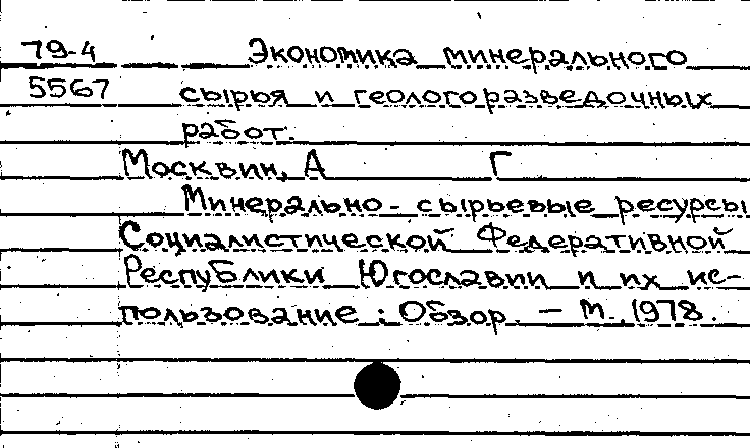 79-4 Экономика минерального
5567 сырья и геологоразведочных
работ.
Москвин, А Г
Минерально-сырьевые ресурсы
Социалистической Федеративной
Республики Югославии и их ис-
пользование : Обзор. - М., 1978.